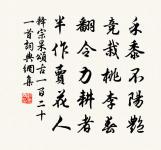 禾黍不陽艷
競栽桃李春
翻令力耕者
半作賣花人
釋宗杲頌古一百二十
一首詞典網集